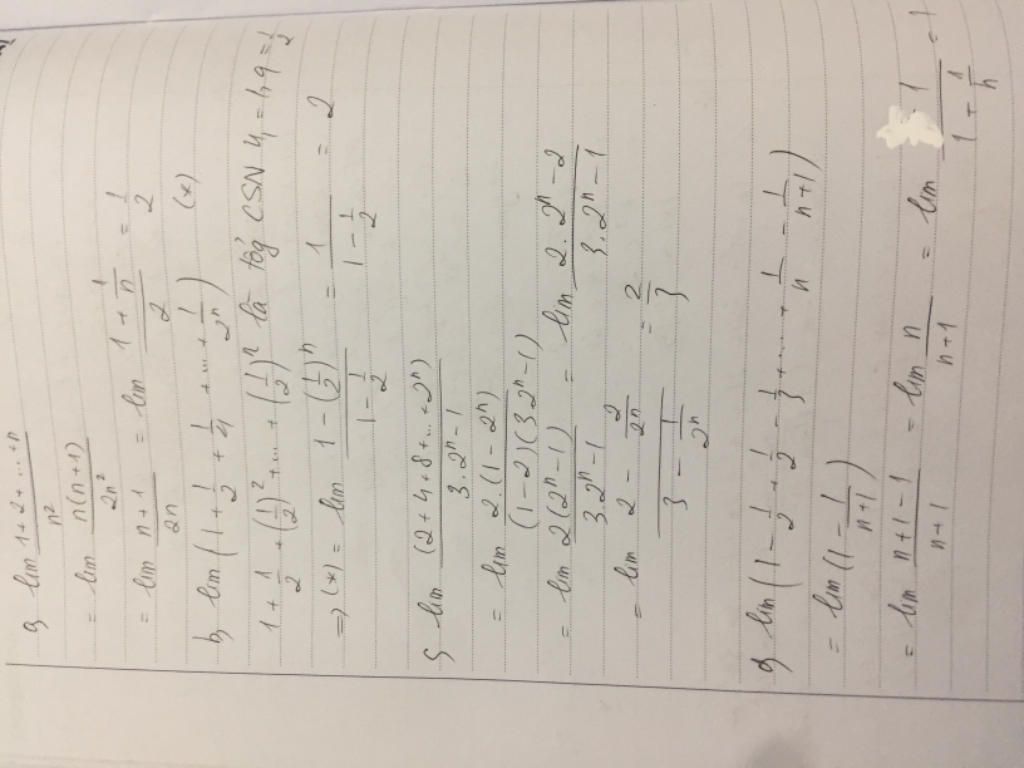 a, lim (1+2+...+n)/n²
= lim n(n+1)/2n²
= lim (n+1)/2n = lim (1+1/n)/2 = 1/2
b, lim (1 + 1/2 + 1/4 + ... + 1/2ⁿ) (*)
1 + 1/2 + (1/2)² + ... + (1/2)ⁿ là tổg CSN u₁ = 1, q = 1/2
⇒ (*) = lim (1 - (1/2)ⁿ)/(1 - 1/2) = 1/(1 - 1/2) = 2
c, lim (2+4+8+...+2ⁿ)/(3.2ⁿ - 1)
= lim 2.(1 - 2ⁿ)/((1-2)(3.2ⁿ - 1))
= lim 2(2ⁿ - 1)/(3.2ⁿ - 1) = lim (2.2ⁿ - 2)/(3.2ⁿ - 1)
= lim (2 - 2/2ⁿ)/(3 - 1/2ⁿ) = 2/3
d, lim (1 - 1/2 + 1/2 - 1/3 + ... + 1/n - 1/(n+1))
= lim (1 - 1/(n+1))
= lim (n+1-1)/(n+1) = lim n/(n+1) = lim 1/(1 + 1/n) = 1